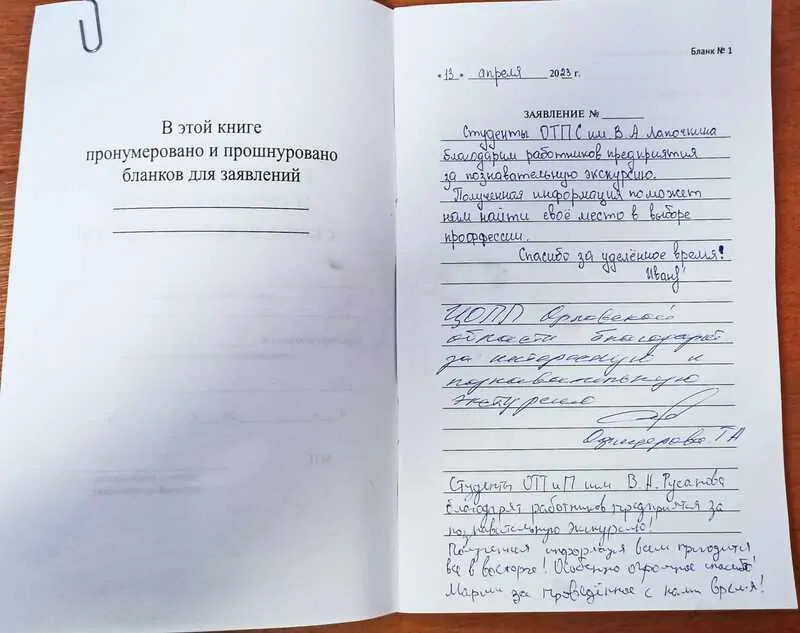 В этой книге
пронумеровано и прошнуровано
бланков для заявлений
Бланк № 1
"13" апреля 2023 г.
ЗАЯВЛЕНИЕ №
Студенты ОТПС им В.А Лапочкина
благодарим работников предприятия
за познавательную экскурсию.
Полученная информация поможет
нам найти своё место в выборе
проффессии.
Спасибо за уделённое время!
ЦОПП Орловской
области благодарит
за интересную и
познавательную
экскурсию
ТА
Студенты ОТиП им В.Н. Русанова
благодарят работников предприятся за
познавательную экскурсию!
Полученная информация всем пригодится
все в восторге! Особенно огромное спасибо!
Марии за проведённое с нами время!